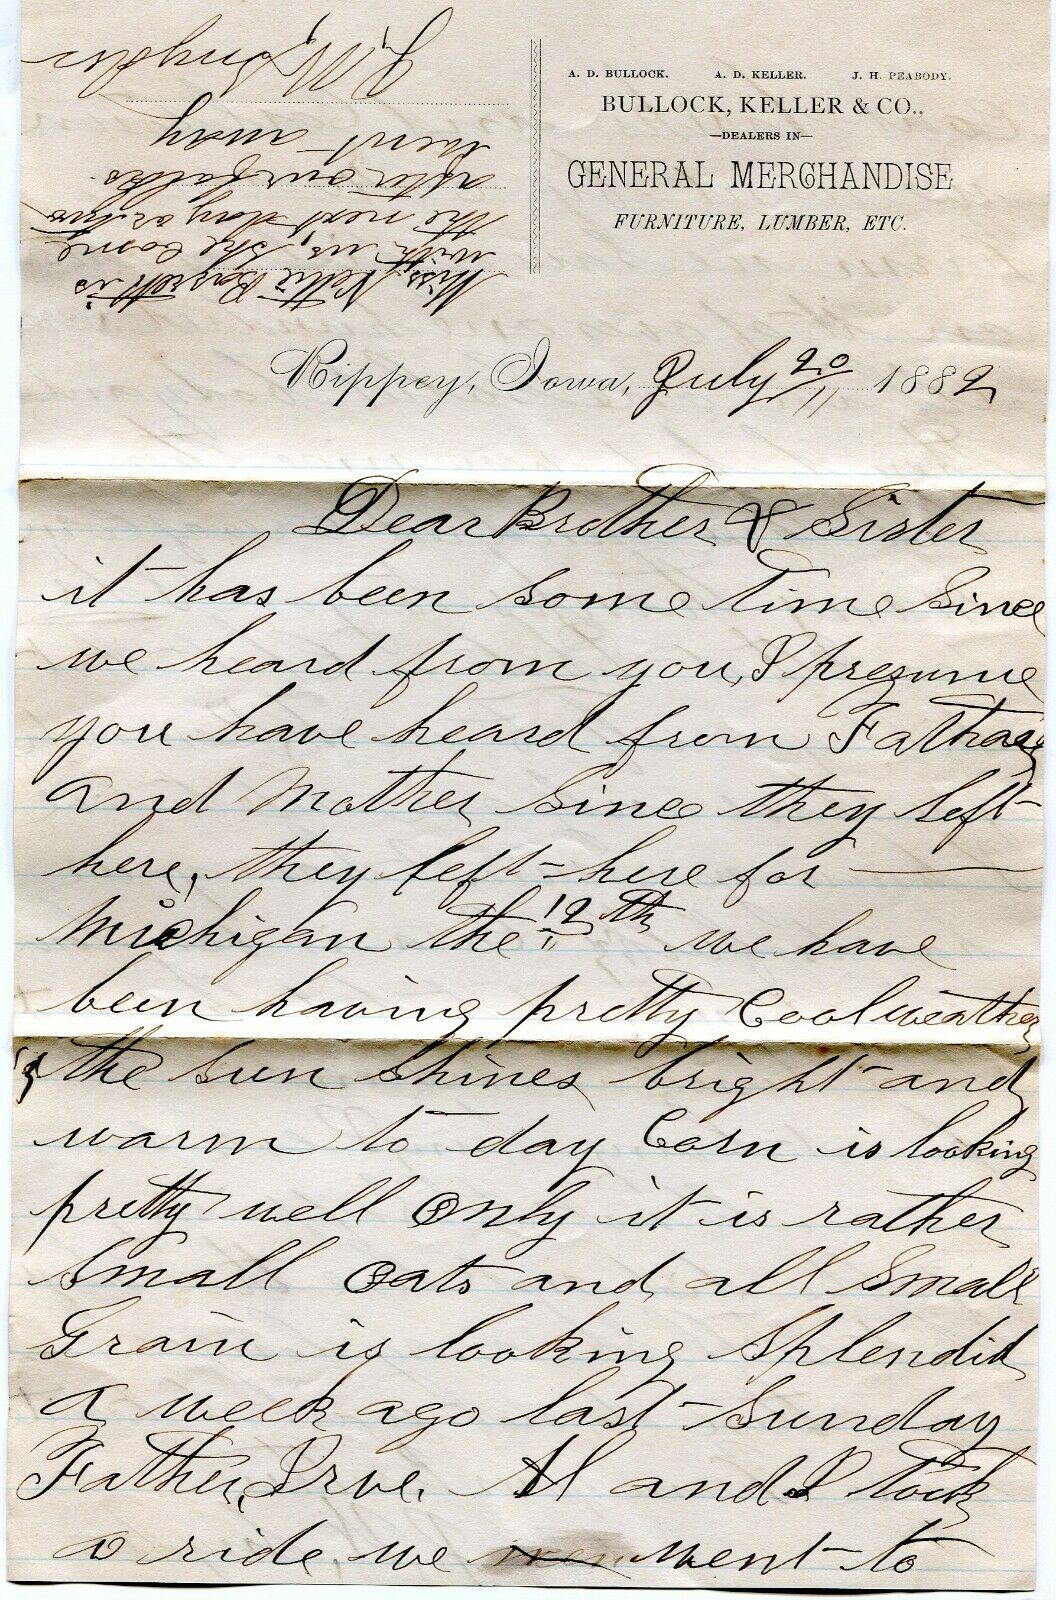 A. D. BULLOCK. A. D. KELLER. J. H. PEABODY.
BULLOCK, KELLER & CO.,
—DEALERS IN—
GENERAL MERCHANDISE
FURNITURE, LUMBER, ETC.
Rippey, Iowa, July 20 1882
Dear Brother & Sister
it has been some time since
we heard from you, I presume
you have heard from Father
and Mother since they left
here, they left here for
Michigan the 12th we have
been having pretty Cool weather
the sun shines bright and
warm to day Corn is looking
pretty well Only it is rather
small oats and all small
Grain is looking splendid
a week ago last Sunday
Father, Irve. Al and I took
a ride. we went to
Miss Nettie is
with us, she Come
the next day or two
after our folks
went away
J. M. Snyder